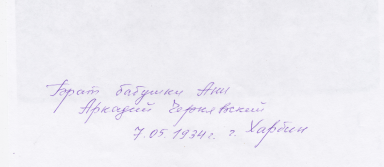 Брат бабушки Ани
Аркадий Чернявский
7.05 1934г. г. Харбин